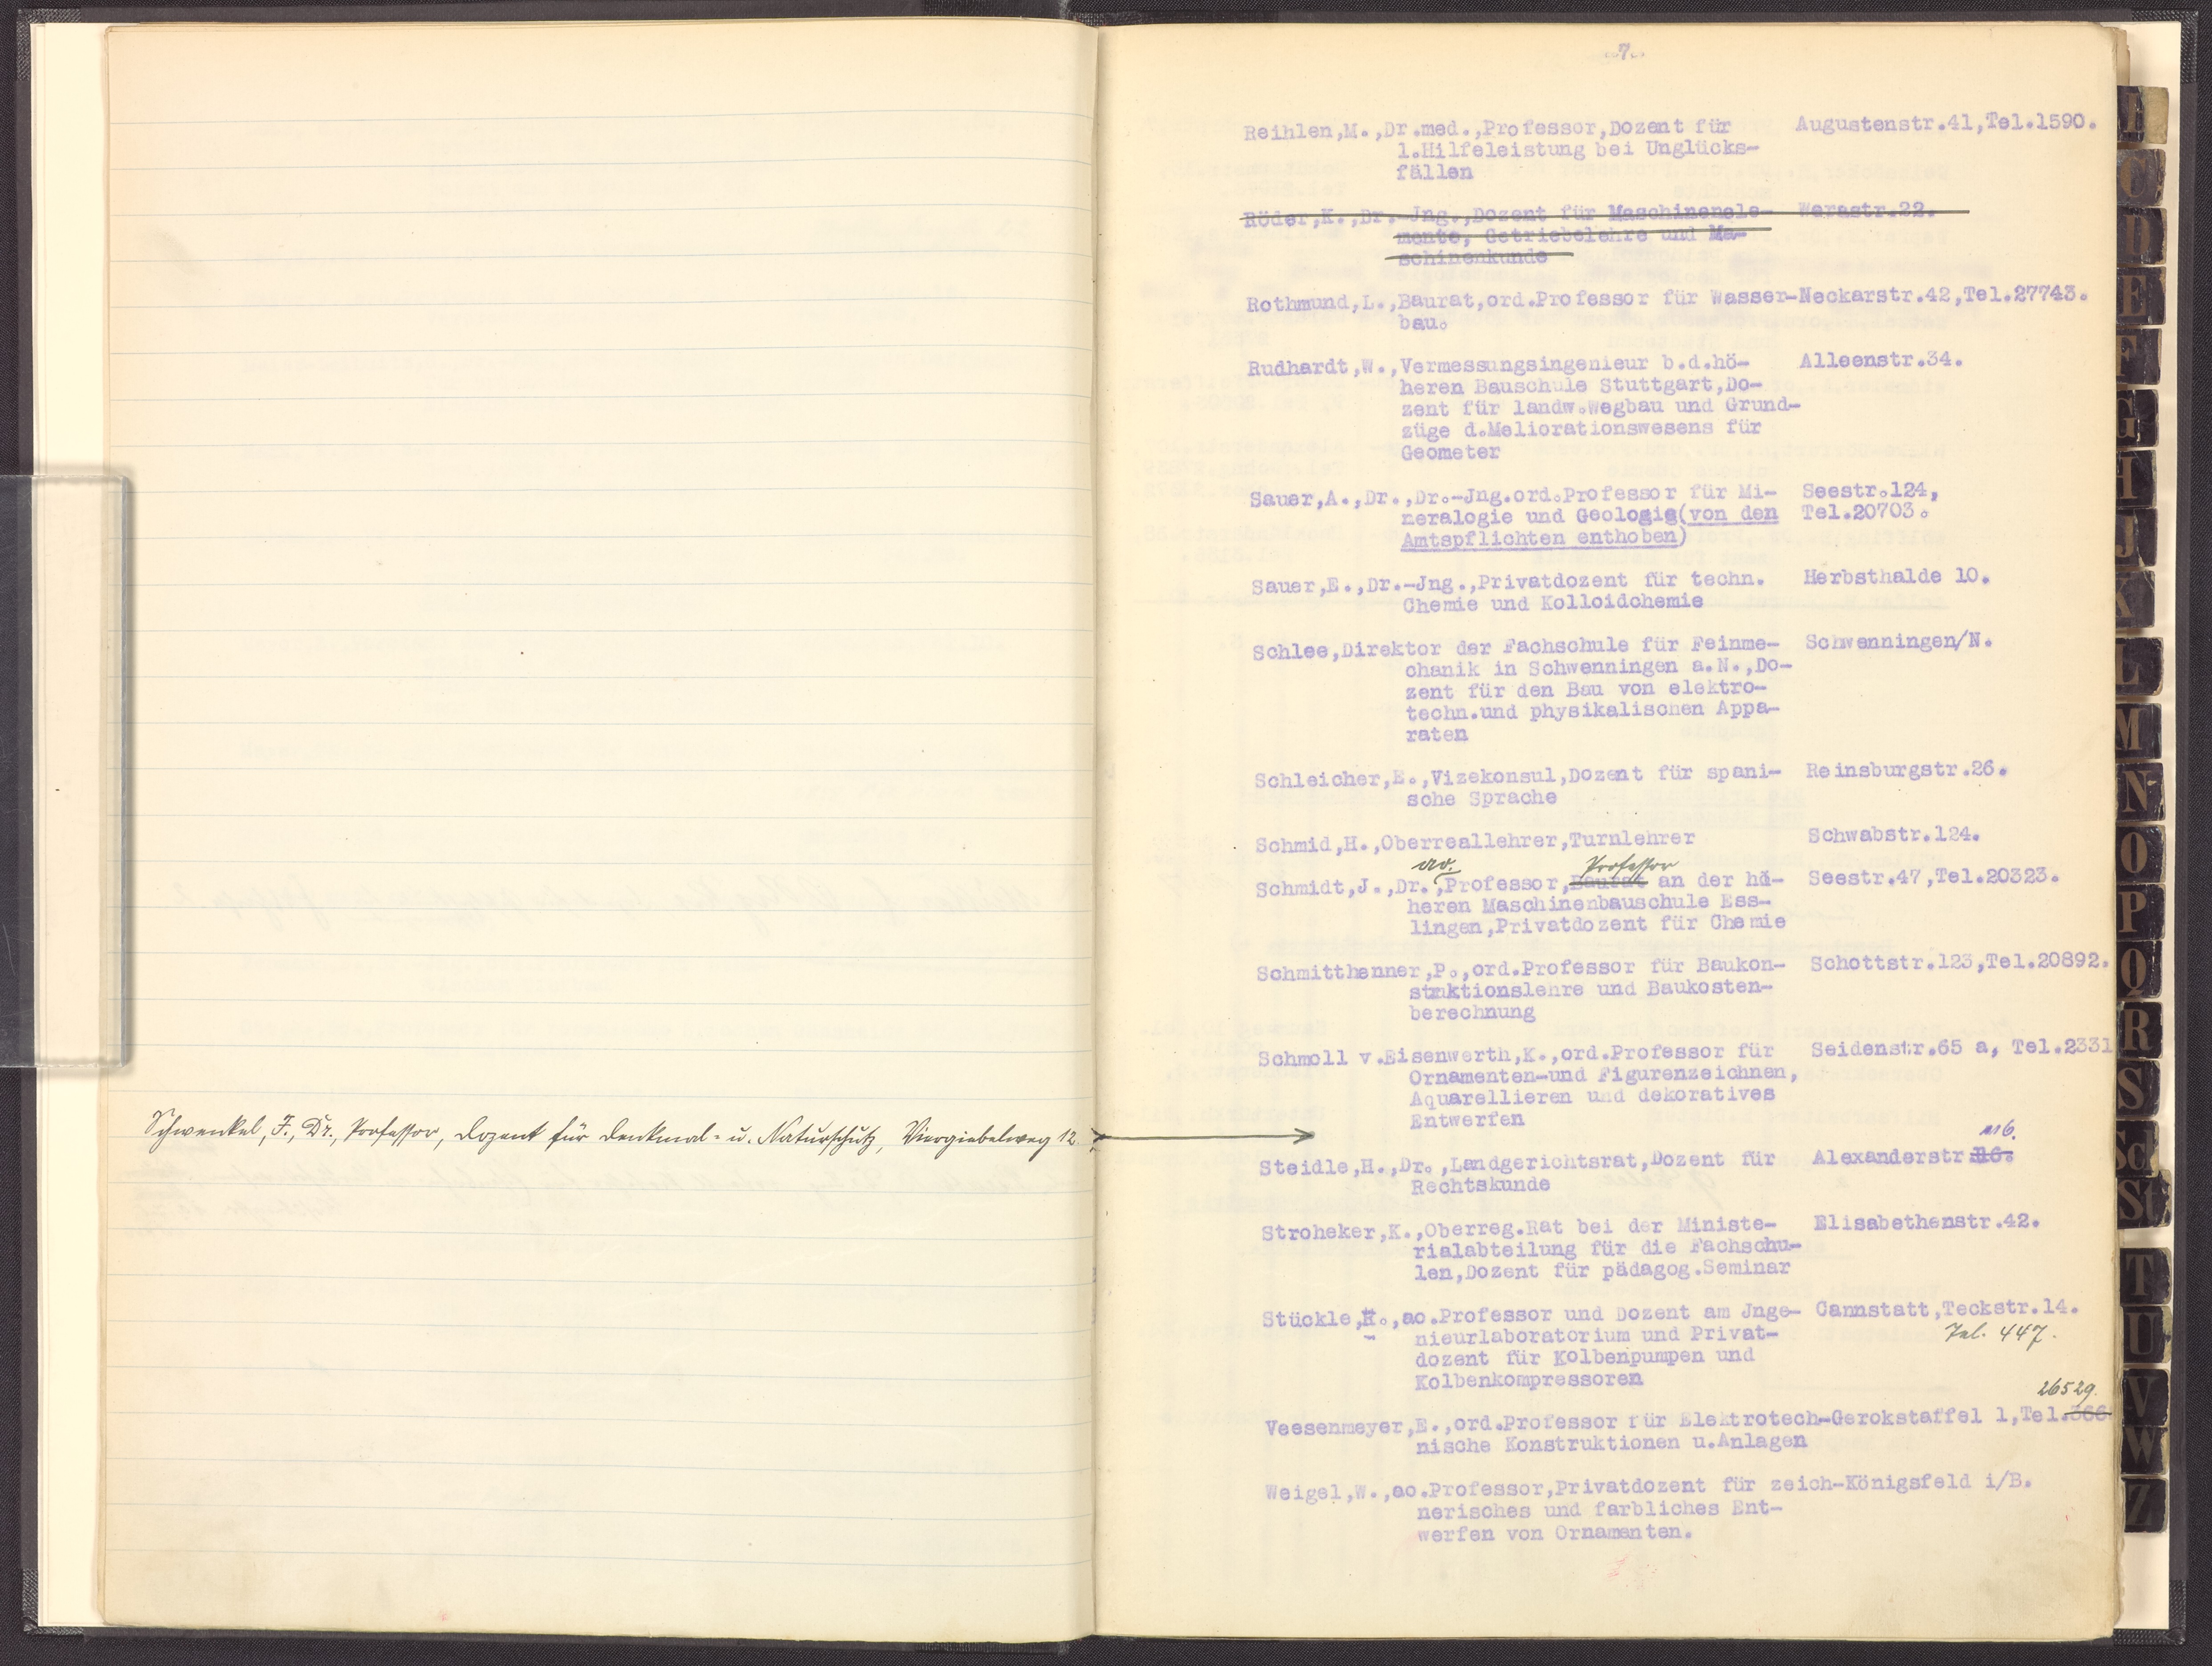 Schwenkel, F., Dr., Professor, Dozent für Denkmal- u. Naturschutz, Viergiebelweg 12.
-7-
Reihlen,M.,Dr.med.,Professor,Dozent für Augustenstr.41,Tel.1590.
1.Hilfeleistung bei Unglücks-
fällen
Röder,K.,Dr.-Jng.,Dozent für Maschinenele- Werastr.22.
mente, Getriebelehre und Ma-
schinenkunde
Rothmund,L.,Baurat,ord.Professor für Wasser-Neckarstr.42,Tel.27743.
bau.
Rudhardt,W.,Vermessungsingenieur b.d.hö- Alleenstr.34.
heren Bauschule Stuttgart,Do-
zent für landw.Wegbau und Grund-
züge d.Meliorationswesens für
Geometer
Sauer,A.,Dr.,Dr.-Jng.ord.Professor für Mi- Seestr.124,
neralogie und Geologie(von den Tel.20703.
Amtspflichten enthoben)
Sauer,E.,Dr.-Jng.,Privatdozent für techn. Herbsthalde 10.
Chemie und Kolloidchemie
Schlee,Direktor der Fachschule für Feinme- Schwenningen/N.
chanik in Schwenningen a.N.,Do-
zent für den Bau von elektro-
techn.und physikalischen Appa-
raten
Schleicher,E.,Vizekonsul,Dozent für spani- Reinsburgstr.26.
sche Sprache
Schmid,H.,Oberreallehrer,Turnlehrer Schwabstr.124.
ao. Professor
Schmidt,J.,Dr.,Professor,Baurat an der hö- Seestr.47,Tel.20323.
heren Maschinenbauschule Ess-
lingen,Privatdozent für Chemie
Schmitthenner,P.,ord.Professor für Baukon- Schottstr.123,Tel.20892.
struktionslehre und Baukosten-
berechnung
Schmoll v.Eisenwerth,K.,ord.Professor für Seidenstr.65 a, Tel.2331
Ornamenten-und Figurenzeichnen,
Aquarellieren und dekoratives
Entwerfen
116.
Steidle,H.,Dr.,Landgerichtsrat,Dozent für Alexanderstr.16.
Rechtskunde
Stroheker,K.,Oberreg.Rat bei der Ministe- Elisabethenstr.42.
rialabteilung für die Fachschu-
len,Dozent für pädagog.Seminar
Stückle,R.,ao.Professor und Dozent am Jnge- Cannstatt,Teckstr.14.
nieurlaboratorium und Privat- Tel. 447.
dozent für Kolbenpumpen und
Kolbenkompressoren
26529.
Veesenmeyer,E.,ord.Professor für Elektrotech-Gerokstaffel 1,Tel.366
nische Konstruktionen u.Anlagen
Weigel,W.,ao.Professor,Privatdozent für zeich-Königsfeld i/B.
nerisches und farbliches Ent-
werfen von Ornamenten.
D
E
F
G
H
J
K
L
M
N
O
P
Q
R
S
Sch
St
T
U
V
W
Z